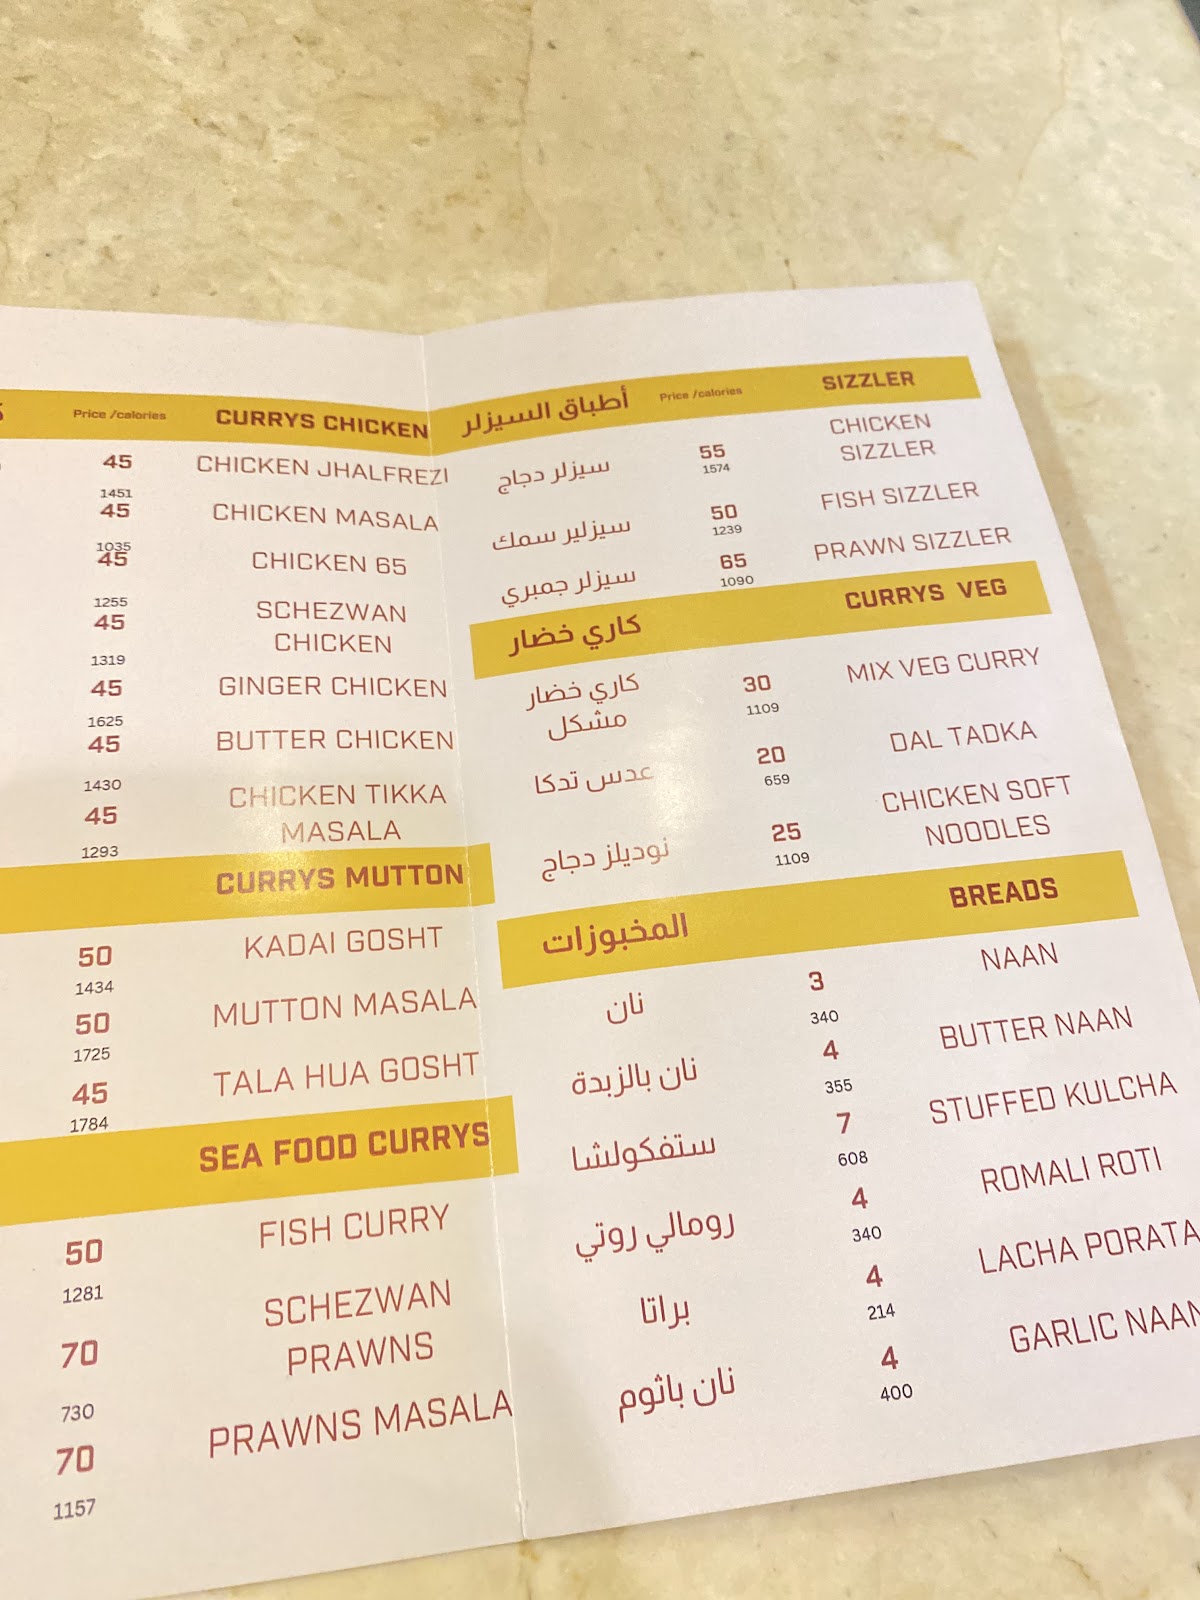 Price /calories
CURRYS CHICKEN
45
CHICKEN JHALFREZI
1451
45
CHICKEN MASALA
1035
45
CHICKEN 65
1255
45
SCHEZWAN
CHICKEN
1319
45
GINGER CHICKEN
1625
45
BUTTER CHICKEN
1430
45
CHICKEN TIKKA
MASALA
1293
CURRYS MUTTON
50
KADAI GOSHT
1434
50
MUTTON MASALA
1725
45
TALA HUA GOSHT
1784
SEA FOOD CURRYS
50
FISH CURRY
1281
70
SCHEZWAN
PRAWNS
730
70
PRAWNS MASALA
1157
أطباق السيزلر
Price /calories
SIZZLER
سيزلر دجاج
55
1574
CHICKEN
SIZZLER
سيزلير سمك
50
1239
FISH SIZZLER
سيزلر جمبري
65
1090
PRAWN SIZZLER
كاري خضار
CURRYS VEG
كاري خضار
مشكل
30
1109
MIX VEG CURRY
عدس تدكا
20
659
DAL TADKA
نوديلز دجاج
25
1109
CHICKEN SOFT
NOODLES
المخبوزات
BREADS
نان
3
340
NAAN
نان بالزبدة
4
355
BUTTER NAAN
ستفكولشا
7
608
STUFFED KULCHA
رومالي روتي
4
340
ROMALI ROTI
براتا
4
214
LACHA PORATA
نان باثوم
4
400
GARLIC NAAN